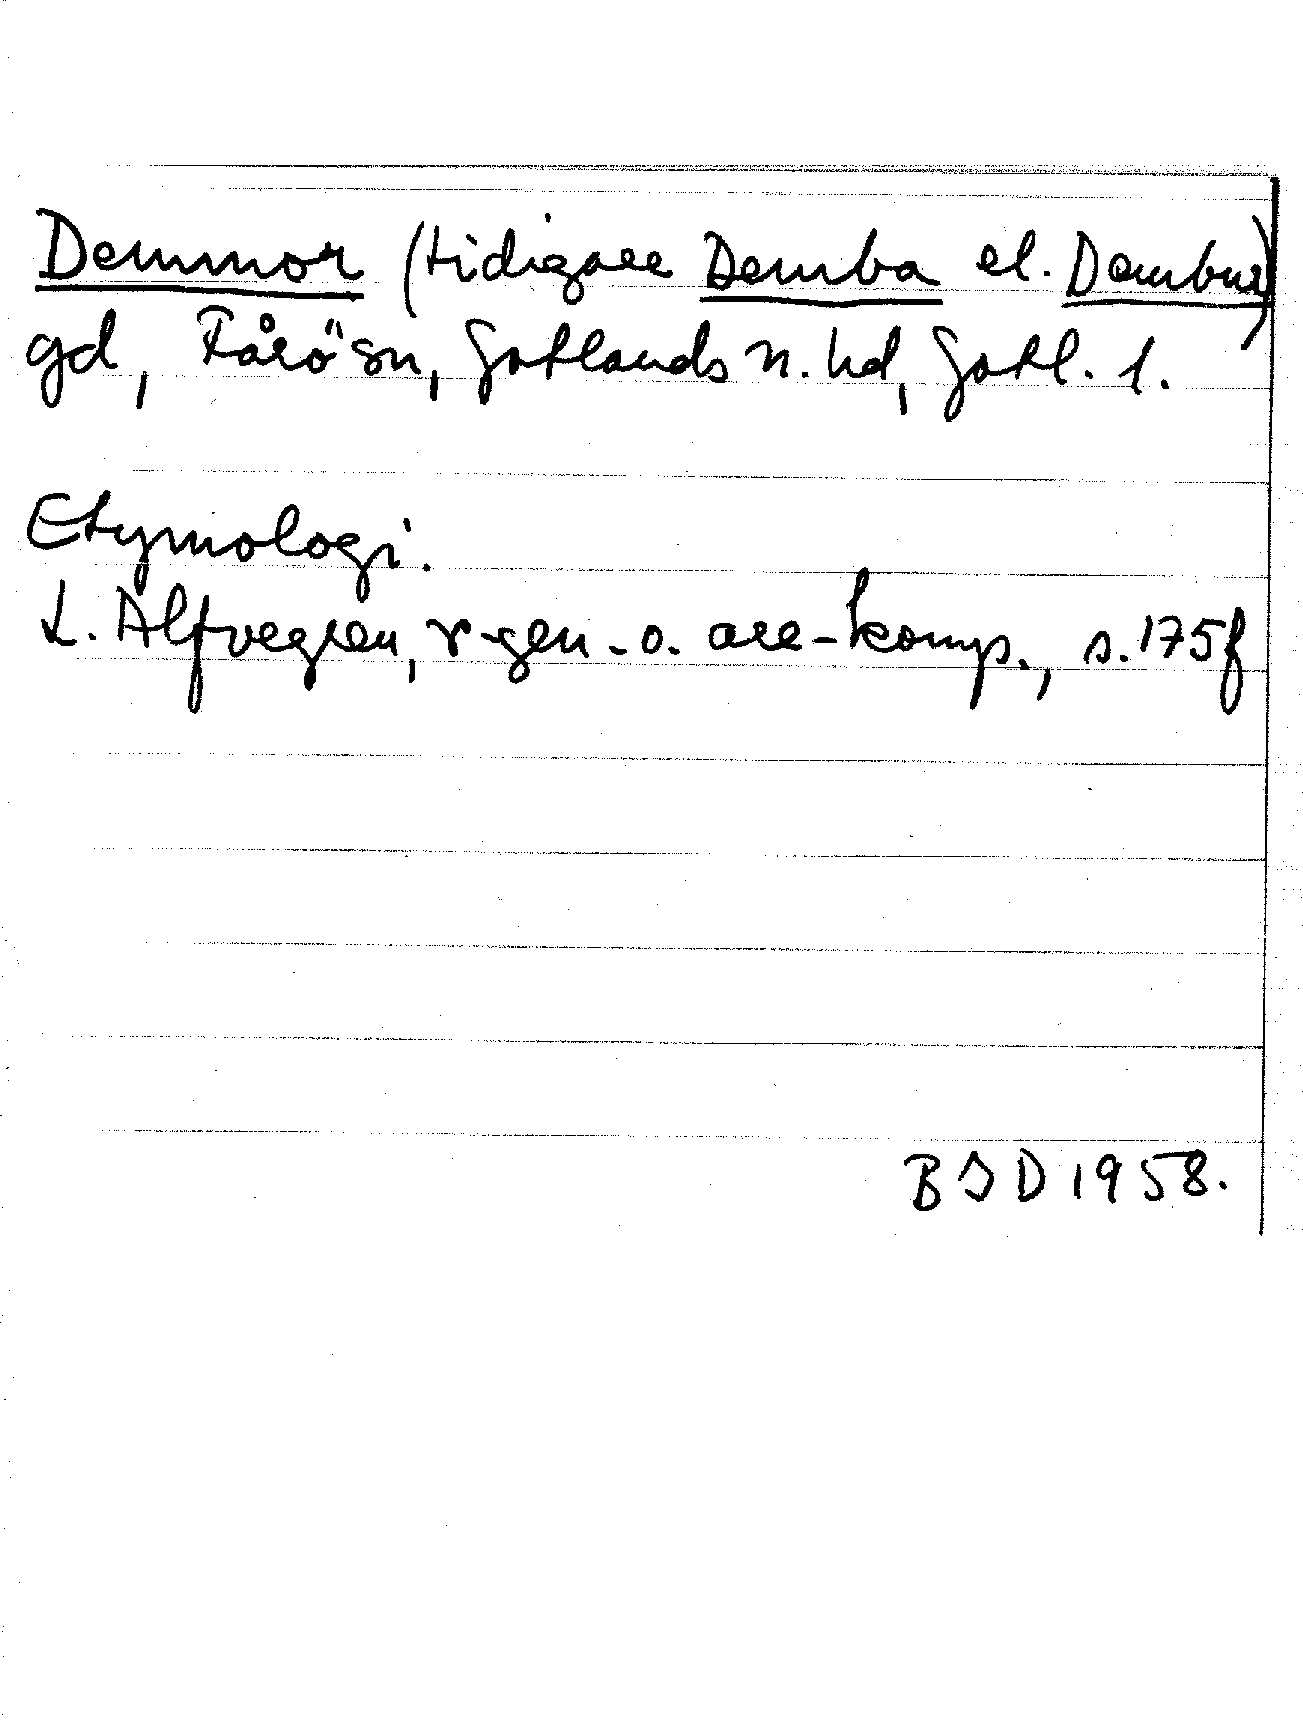 Demmor (tidigare Demba el. Dembur)
gd, Fårö sn, Gotlands n. hd, Gotl. l.
Etymologi.
L. Alfvegren, r-gen. o. are-komp., s. 175f
B S D 1958.